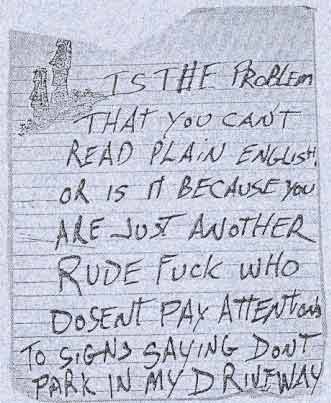 IS THE PROBLEM
THAT YOU CAN'T
READ PLAIN ENGLISH,
OR IS IT BECAUSE YOU
ARE JUST ANOTHER
RUDE FUCK WHO
DOSENT PAY ATTENTIONS
TO SIGNS SAYING DONT
PARK IN MY DRIVEWAY